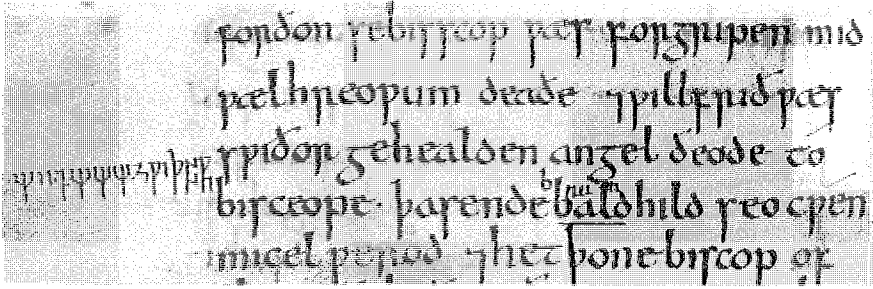 forðon se biscop ƿæs forgripen mid
ƿælhreoƿum deaðe ⁊ ƿilfrið ƿæs
sƿiðor gehealden angel ðeode to
bisceope. þa sende baldhild seo cƿen
micel ƿerod ⁊ het þone biscop of